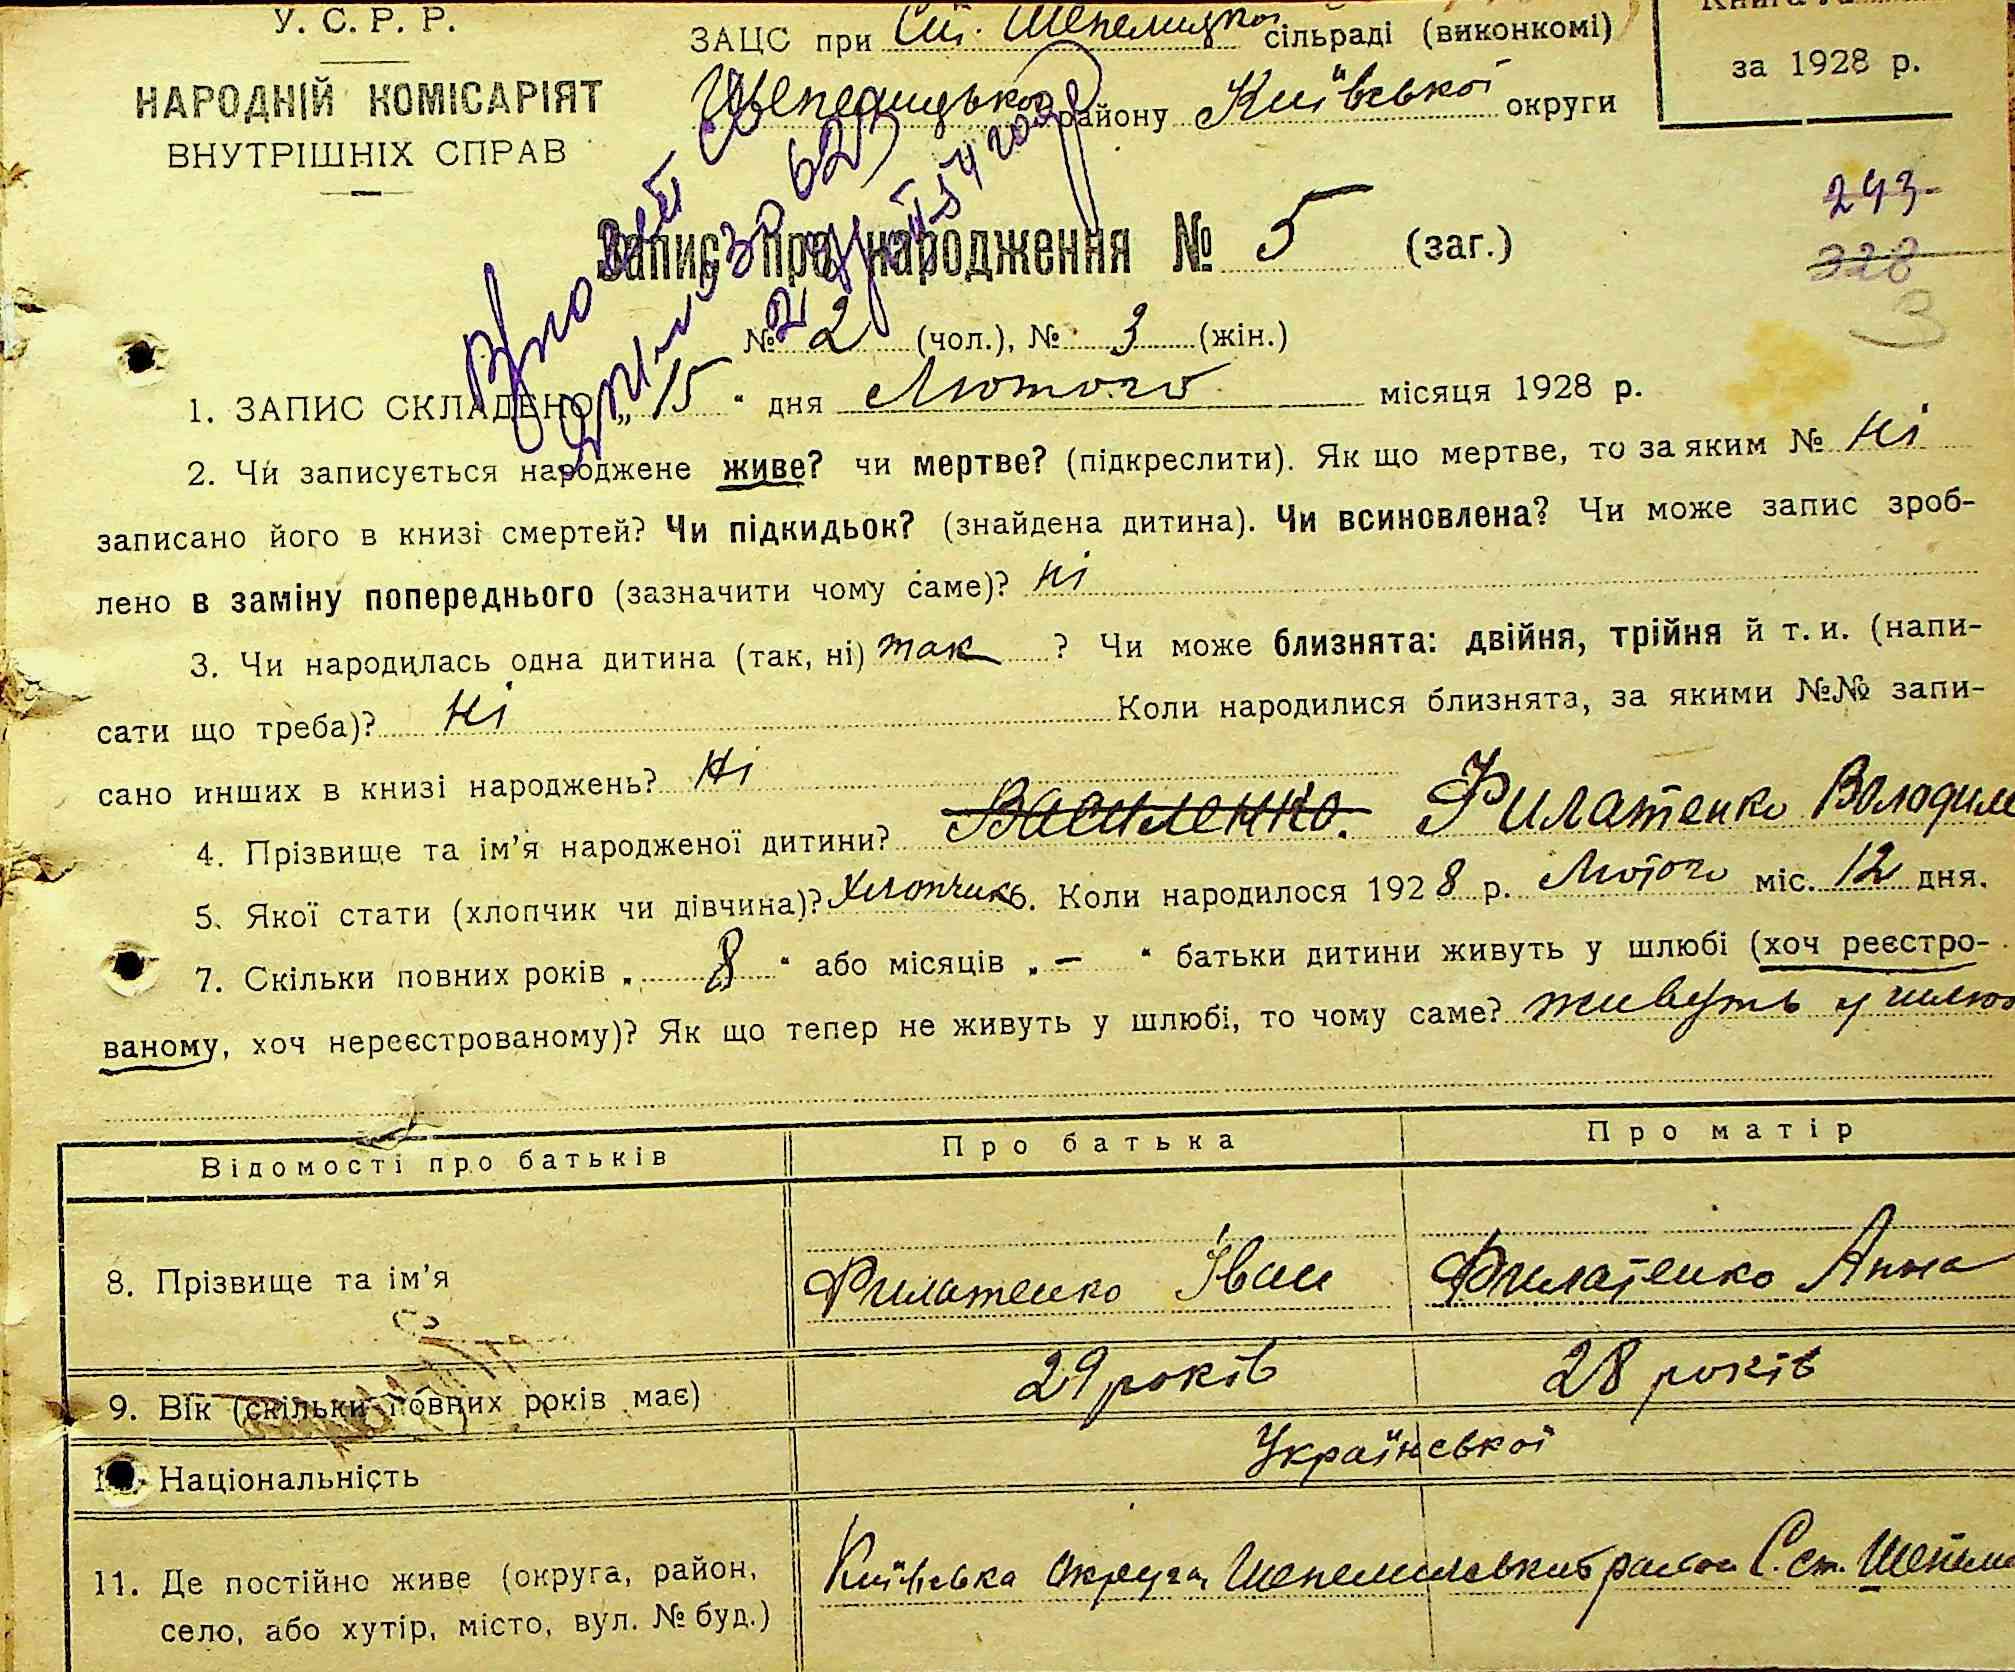 У. С. Р. Р.
НАРОДНІЙ КОМІСАРІЯТ
ВНУТРІШНІХ СПРАВ
ЗАЦС при Ст. Шепелицкої сільраді (виконкомі)
Шепелицького району Київської округи
за 1928 р.
243
328
3
Запис про народження № 5 (заг.)
№ 2 (чол.), № 3 (жін.)
1. ЗАПИС СКЛАДЕНО „ 15 “ дня Лютого місяця 1928 р.
2. Чи записується народжене живе? чи мертве? (підкреслити). Як що мертве, то за яким № Ні
записано його в книзі смертей? Чи підкидьок? (знайдена дитина). Чи всиновлена? Чи може запис зроб-
лено в заміну попереднього (зазначити чому саме)? Ні
3. Чи народилась одна дитина (так, ні) так ? Чи може близнята: двійня, трійня й т. и. (напи-
сати що треба)? Ні Коли народилися близнята, за якими №№ запи-
сано инших в книзі народжень? Ні
4. Прізвище та ім’я народженої дитини? Василенко. Филатенко Володиме
5. Якої стати (хлопчик чи дівчина)? Хлопчикь. Коли народилося 1928 р. Лютого міс. 12 дня.
7. Скільки повних років „ 8 “ або місяців „ — “ батьки дитини живуть у шлюбі (хоч реєстро-
ваному, хоч нереєстрованому)? Як що тепер не живуть у шлюбі, то чому саме? живуть у шлюб
Відомості про батьків Про батька Про матір
8. Прізвище та ім’я Филатенко Іван Филатенко Анна
9. Вік (скільки повних років має) 29 років 28 років
Національність Української
11. Де постійно живе (округа, район, Київська округа, район С. ст. Шепели
село, або хутір, місто, вул. № буд.)